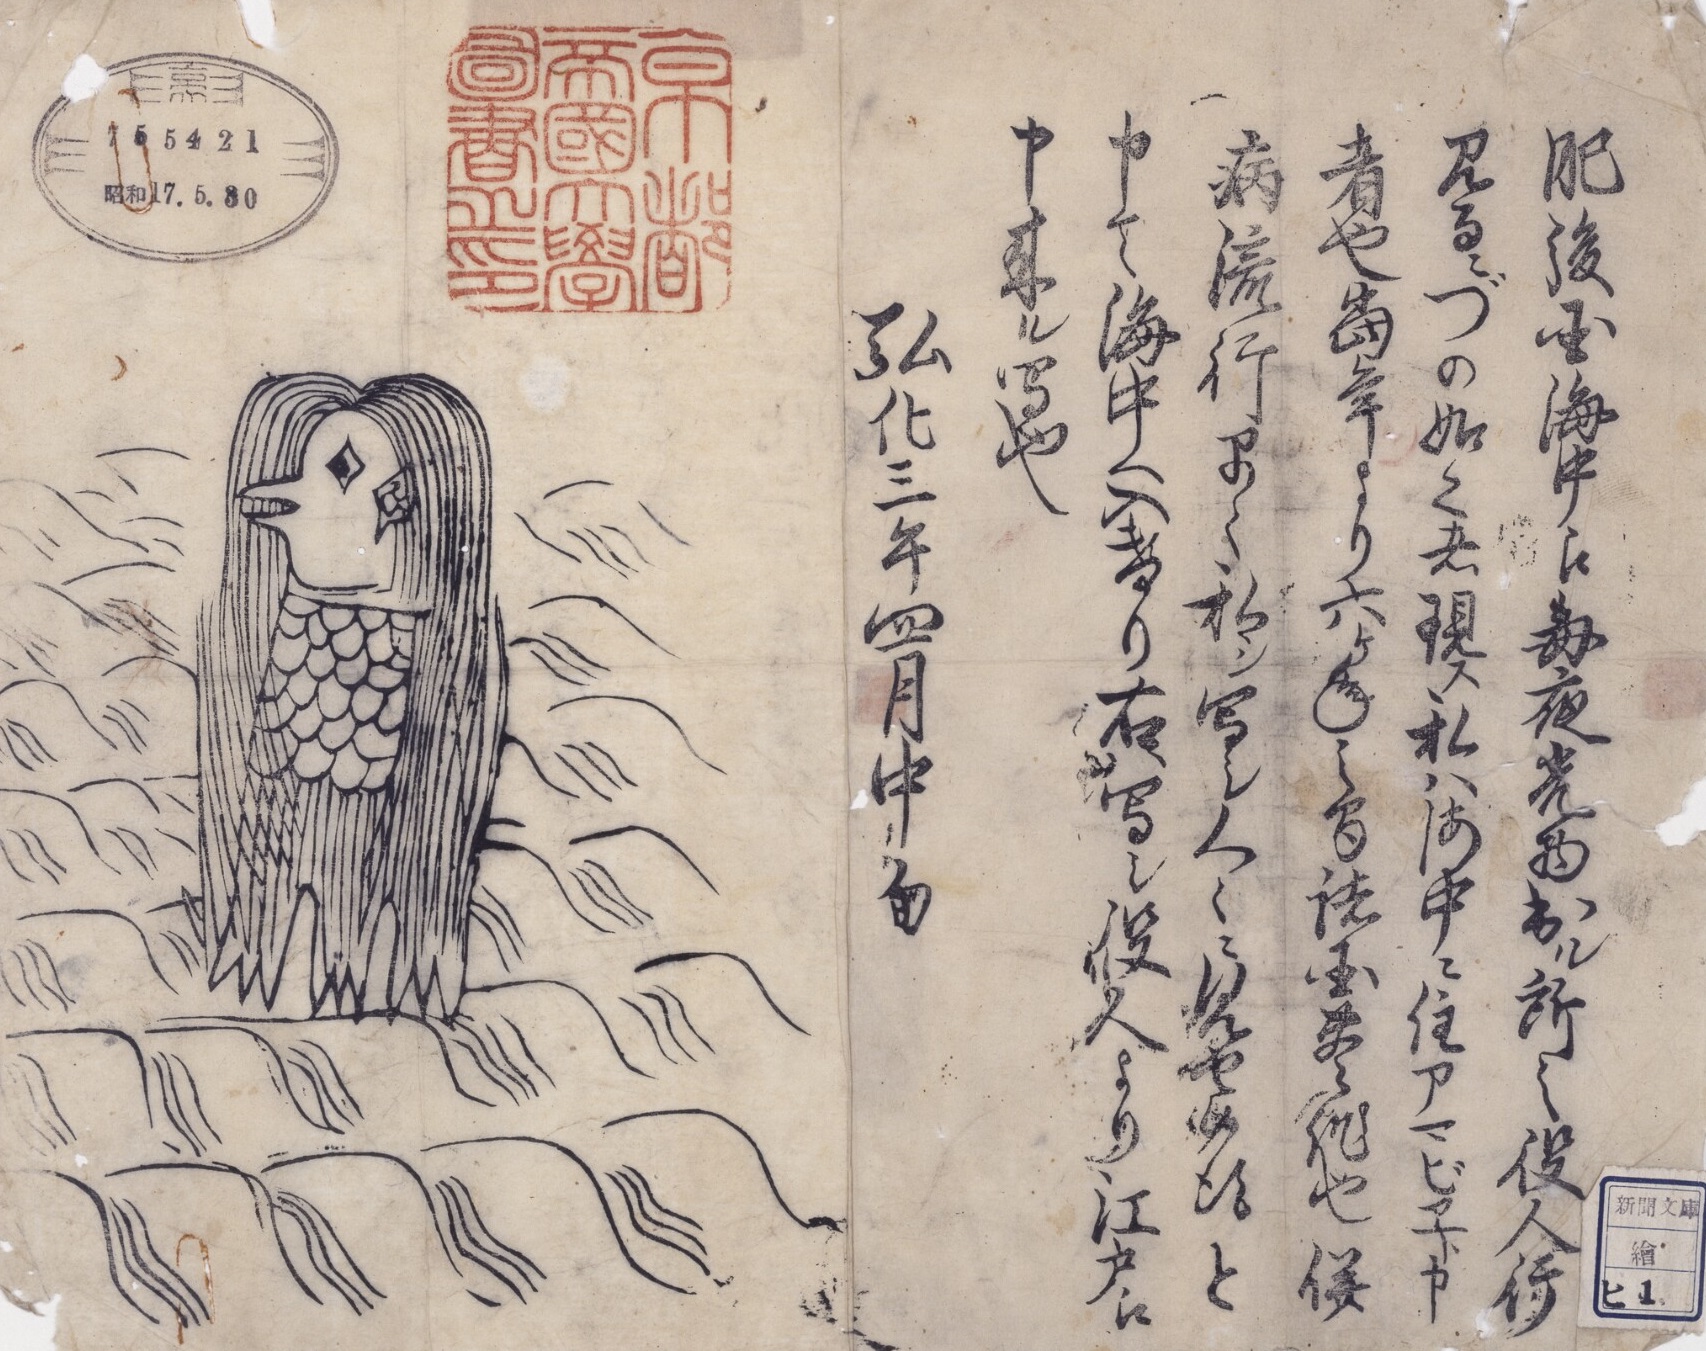 肥後国海中江毎夜光物出ル所之役人行
見るニづの如く者現ス私ハ海中ニ住アマビヱト申
者也当年より六ヶ年之間諸国豊作也併
病流行早々私ヲ写シ人々ニ見セ候得と
申て海中へ入けり右写シ役人より江戸江
申来ル写也
弘化三年四月中旬
京都
帝國大學
圖書之印
755421
昭和17.5.30
新聞文庫
繪
ヒ1